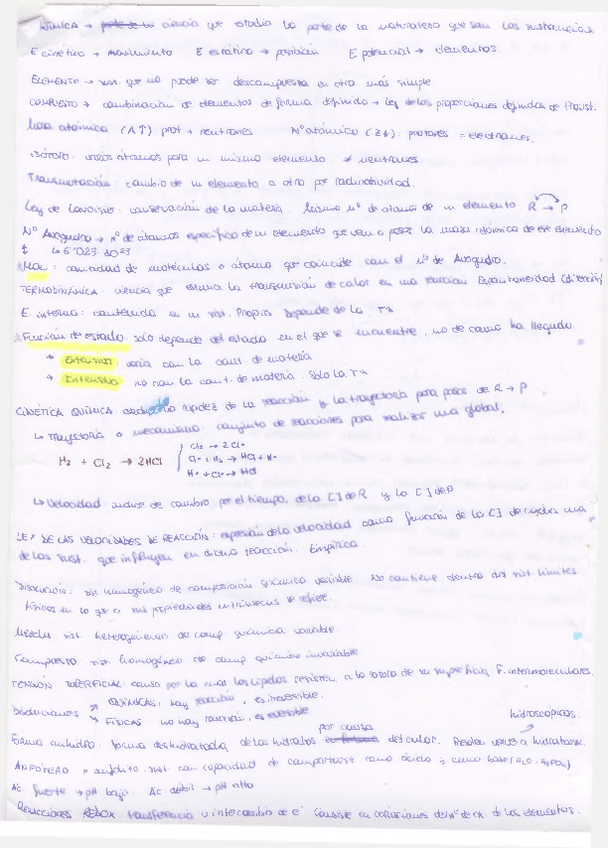 QUÍMICA → ciencia que estudia la parte de la naturaleza que son las sustancias
E cinética → movimiento E estática → posición E potencial → elementos.
ELEMENTO → sust. que no puede ser descompuesta en otra más simple
COMPUESTO → combinación de elementos de forma definida → Ley de las proporciones definidas de Proust.
Masa atómica (A↑): prot + neutrones Nº atómico (Z↓): protones = electrones.
ISÓTOPO: varios átomos para un mismo elemento ≠ neutrones
Transmutación: cambio de un elemento a otro por radioactividad.
Ley de Lavoisier: conservación de la materia. Mismo nº de átomos de un elemento R → P
Nº Avogadro → nº de átomos específico de un elemento que ven a pesos la masa atómica de este elemento
↳ 6'023 10^23
Mol: cantidad de moléculas o átomos que coincide con el nº de Avogadro.
TERMODINÁMICA: ciencia que estudia la transmisión de calor en una reacción Espontaneidad (dirección)
E. interna: contenida en un sist. Propia Depende de la Tª
Función de estado: solo depende del estado en el que se encuentre, no de como ha llegado
→ Extensiva: varía con la cant. de materia
→ Intensiva: no con la cant. de materia. Solo la Tª
CINÉTICA QUÍMICA: rapidez de la reacción y la trayectoria para pasar de R → P.
↳ Trayectoria o mecanismo: conjunto de reacciones para realizar una global.
Cl2 → 2Cl•
H2 + Cl2 → 2HCl Cl• + H2 → HCl + H•
H• + Cl• → HCl
↳ Velocidad: indice de cambio por el tiempo, de la [] de R y la [] de P
LEY DE LAS VELOCIDADES DE REACCIÓN: expresión de la velocidad como función de la [] de cada una
de las sust. que influyen en dicha reacción. Empírica
Disolución: sist homogéneo de composición química variable. No contiene dentro del sist. límites
físicos en lo que a sus propiedades intrínsecas se refiere.
Mezcla sist. heterogéneo de comp química variable
Compuesto sist. homogéneo de comp química invariable
TENSIÓN SUPERFICIAL causa por la cual los líquidos resisten a la rotura de su superficie F. intermoleculares.
Disoluciones ↗ QUÍMICAS: hay reacción, es irreversible.
↘ FÍSICAS no hay reacción, es reversible hidroscópicos.
Forma anhidra: forma deshidratada de los hidratos por causa del calor. Pueden volver a hidratarse.
ANFÓTERO = anfolito. sust. con capacidad de comportarse como ácido y como base (H2O - H2PO4)
Ac. fuerte → pH bajo. Ac débil → pH alto
REACCIONES REDOX transferencia o intercambio de e⁻ Consiste en variaciones del nº de ox de los elementos.